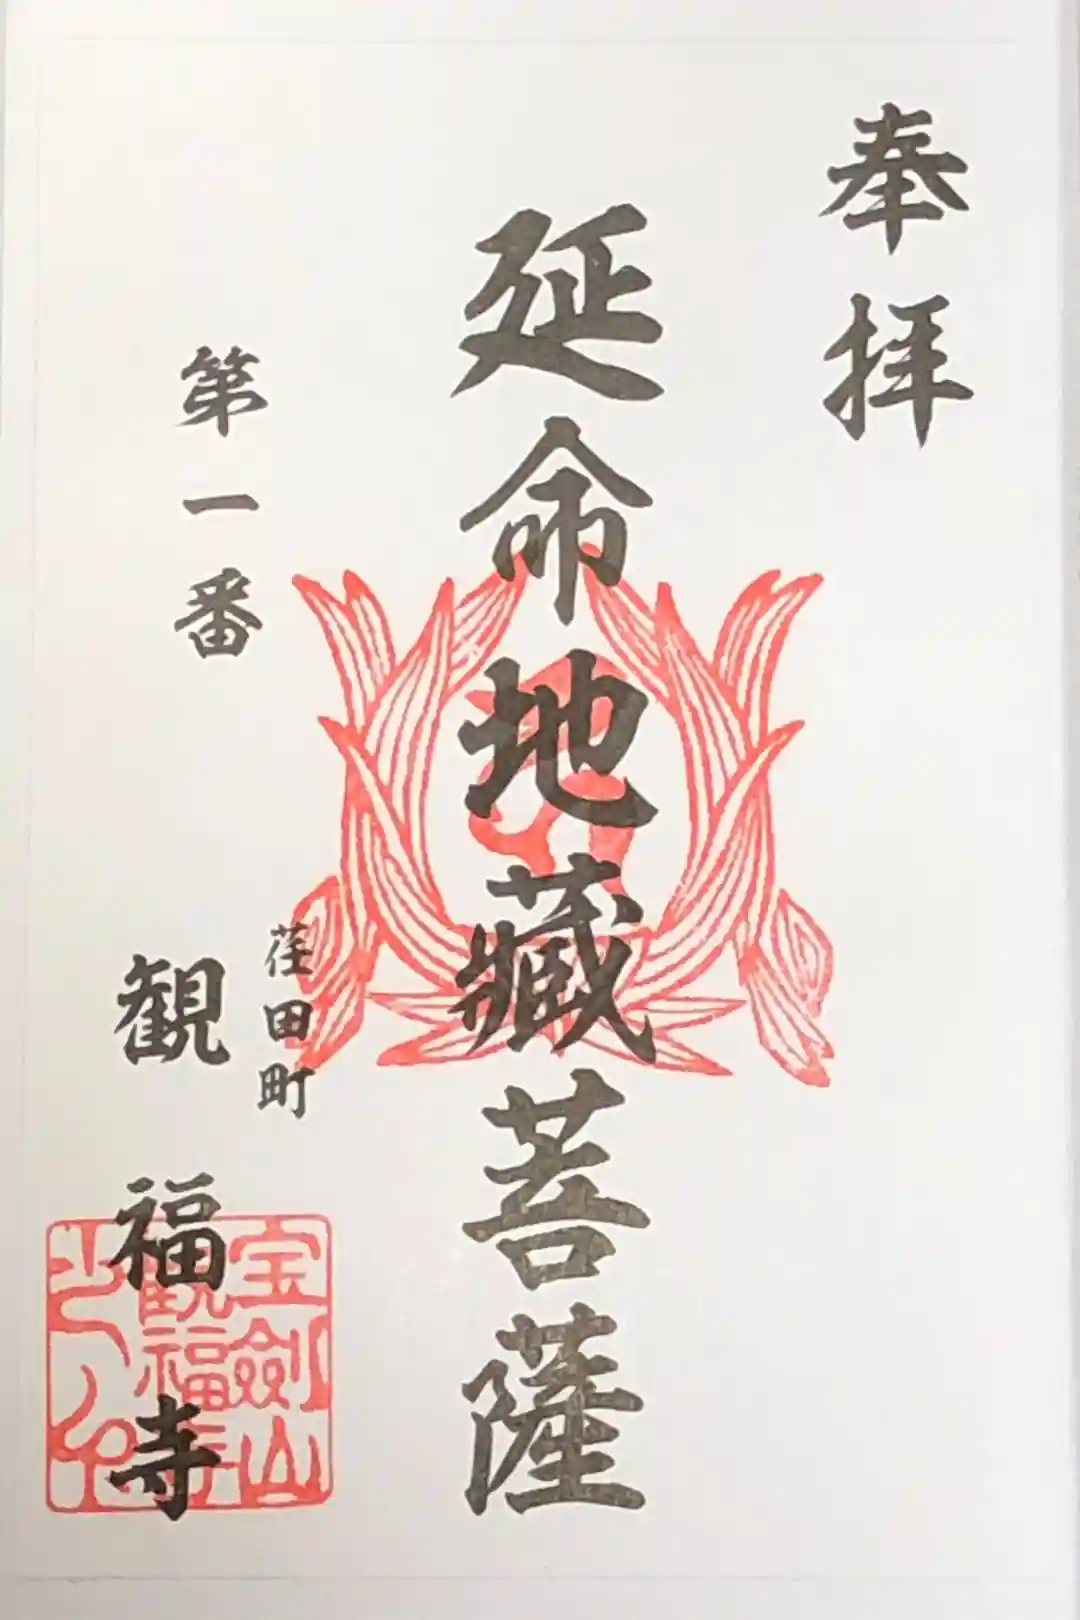 奉拝
延命地藏菩薩
第一番
荏田町
観福寺
宝劍山
観福寺